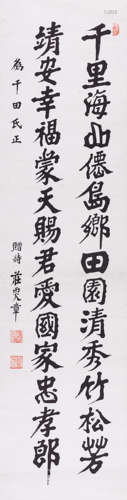 千里海山僊島鄉田園清秀竹松芳
靖安幸福蒙天賜君愛國家忠孝郎
為千田氏正
贈詩 莊雯章